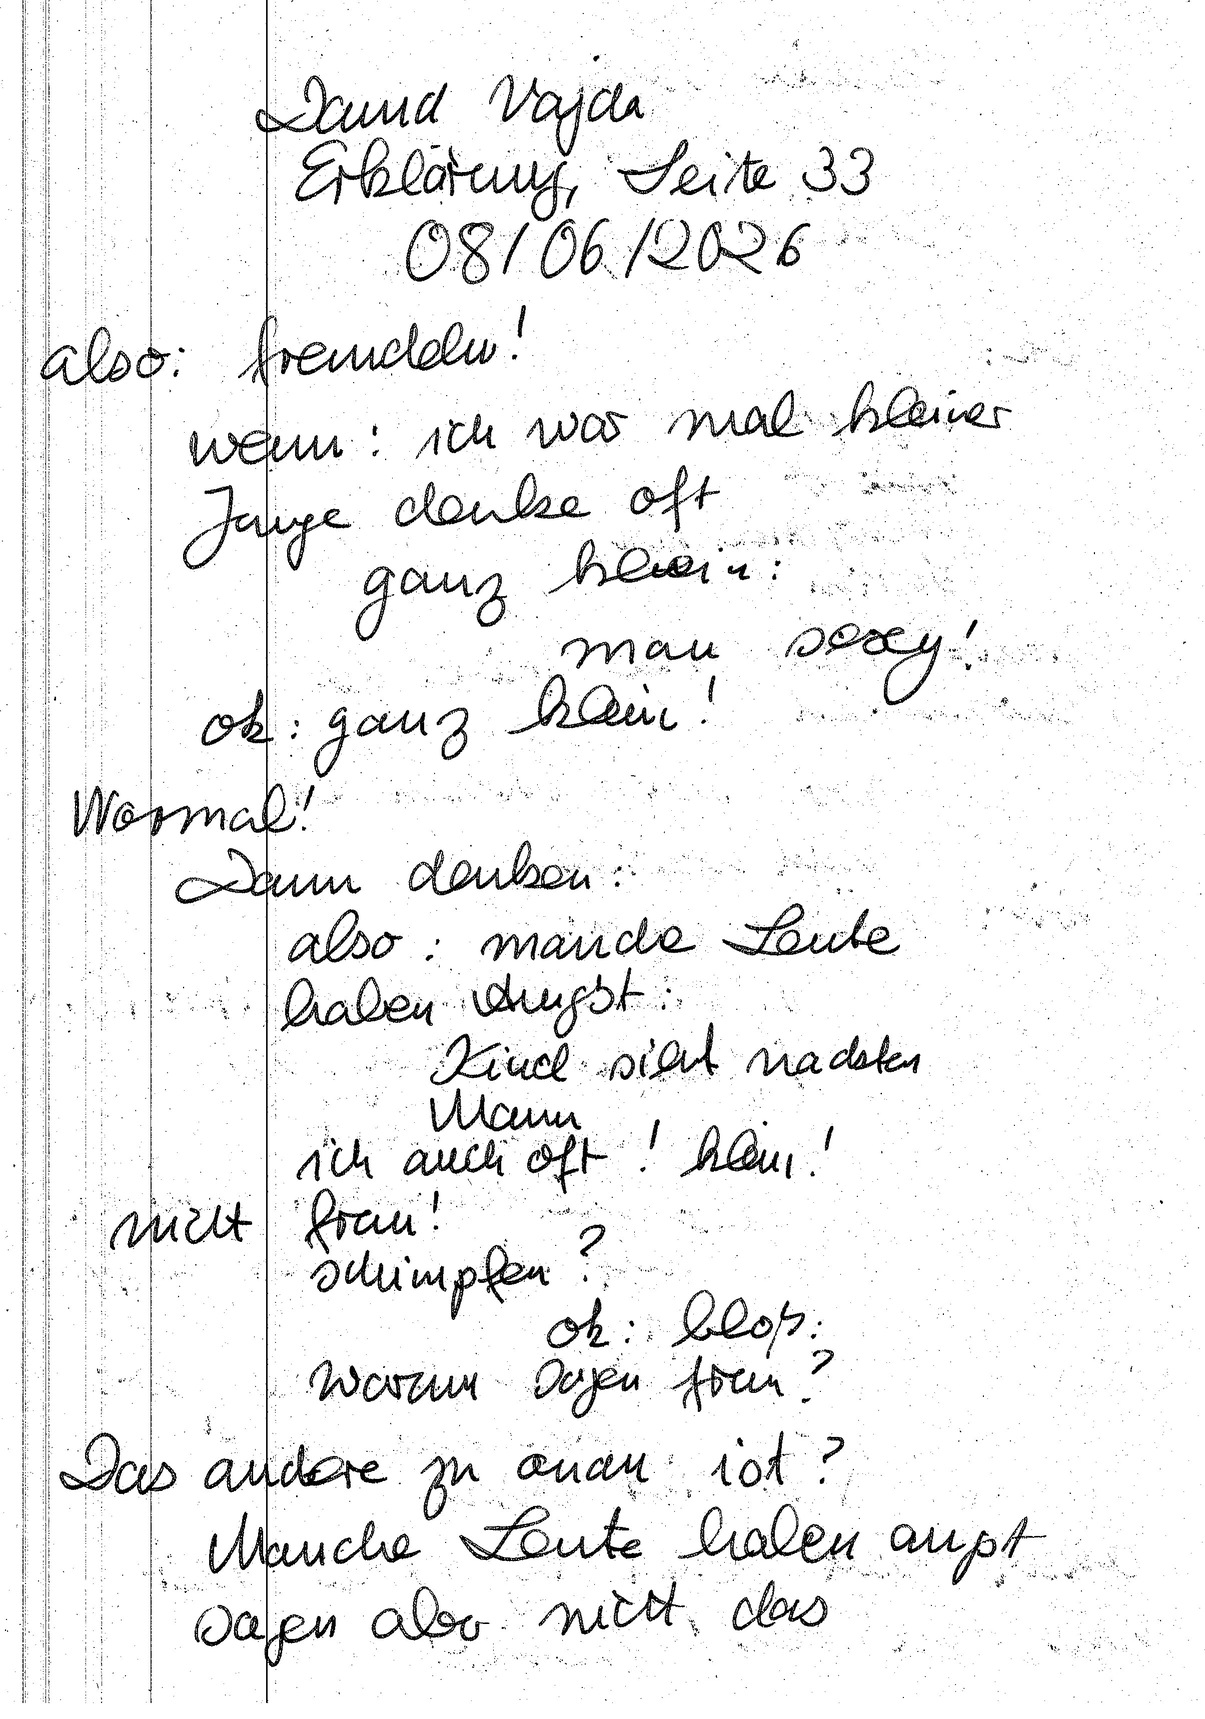 David Vajda
Erklärung, Seite 33
08/06/2026
also: fremdeln!
wenn: ich war mal kleiner
Junge denke oft
ganz klein:
man sexy!
ok: ganz klein!
Normal!
Dann denken:
also: manche Leute
haben Angst:
Kind sieht nackten
Mann
ich auch oft! klein!
nicht frau!
schimpfen?
ok: bloß:
Warum sagen frau?
Das andere zu ist?
Manche Leute haben angst
sagen aber nicht das